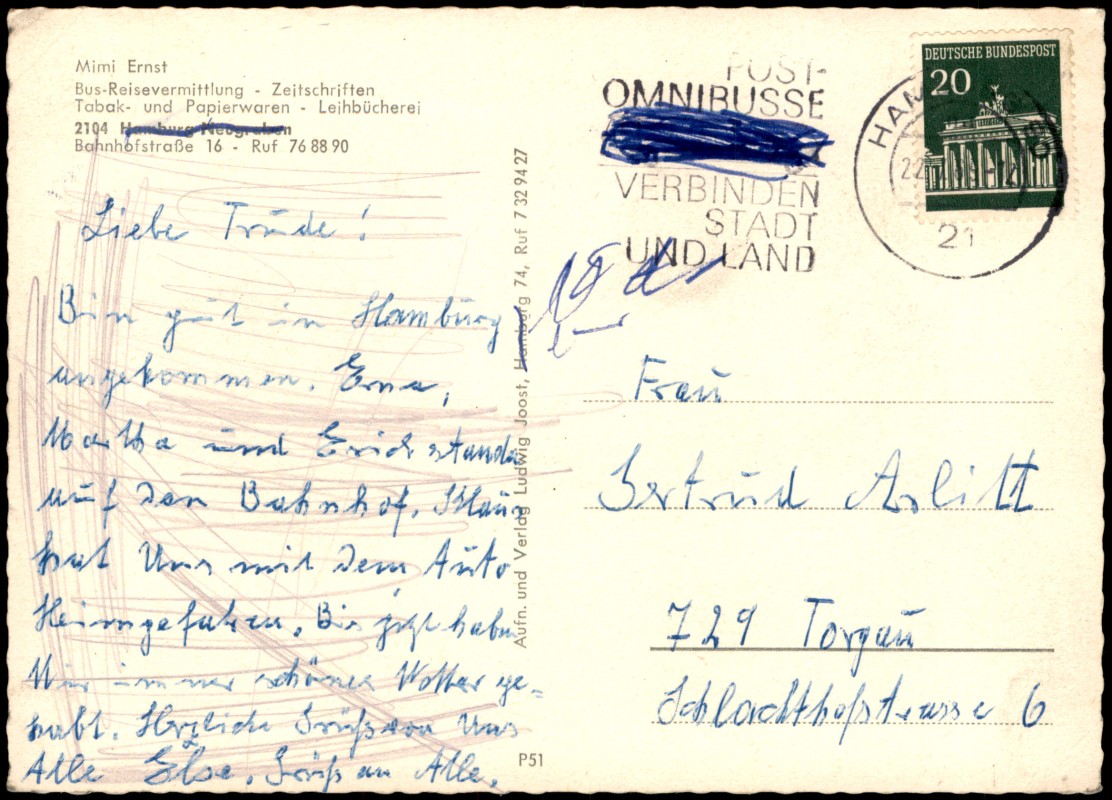 Mimi Ernst
Bus-Reisevermittlung - Zeitschriften
Tabak- und Papierwaren - Leihbücherei
2104 Hamburg-Neugraben
Bahnhofstraße 16 - Ruf 76 88 90
Liebe Trude!
Bin gut in Hamburg
angekommen. Erna,
Martha und Erich standen
auf den Bahnhof. Klaus
hat Uns mit dem Auto
Heimgefahren. Bis jetzt haben
Wir immer schönes Wetter ge-
habt. Herzliche Grüße von Uns
Alle Else. Grüß an Alle.
Aufn. und Verlag Ludwig Joost, Hamburg 74, Ruf 7 32 94 27
P51
POST-
OMNIBUSSE
VERBINDEN
STADT
UND LAND
DEUTSCHE BUNDESPOST
20
21
Frau
Gertrud Arlitt
729 Torgau
Schlachthofstrasse 6